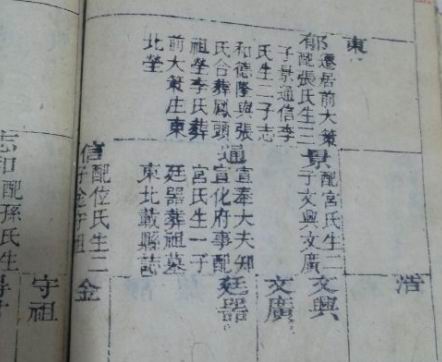 東
郁
遷居前大策
配張氏生三
子景通信李
氏生二子志
和德隆與張
氏合葬鳳頭
祖塋李氏葬
前大策庄東
北塋
景
配宮氏生二
子文興文廣
通
宣奉大夫知
宣化府事配
宮氏生一子
廷器葬祖墓
東北載縣誌
信
配位氏生二
子金守祖
浩
文興
文廣
廷器
金
守祖
和配孫氏生